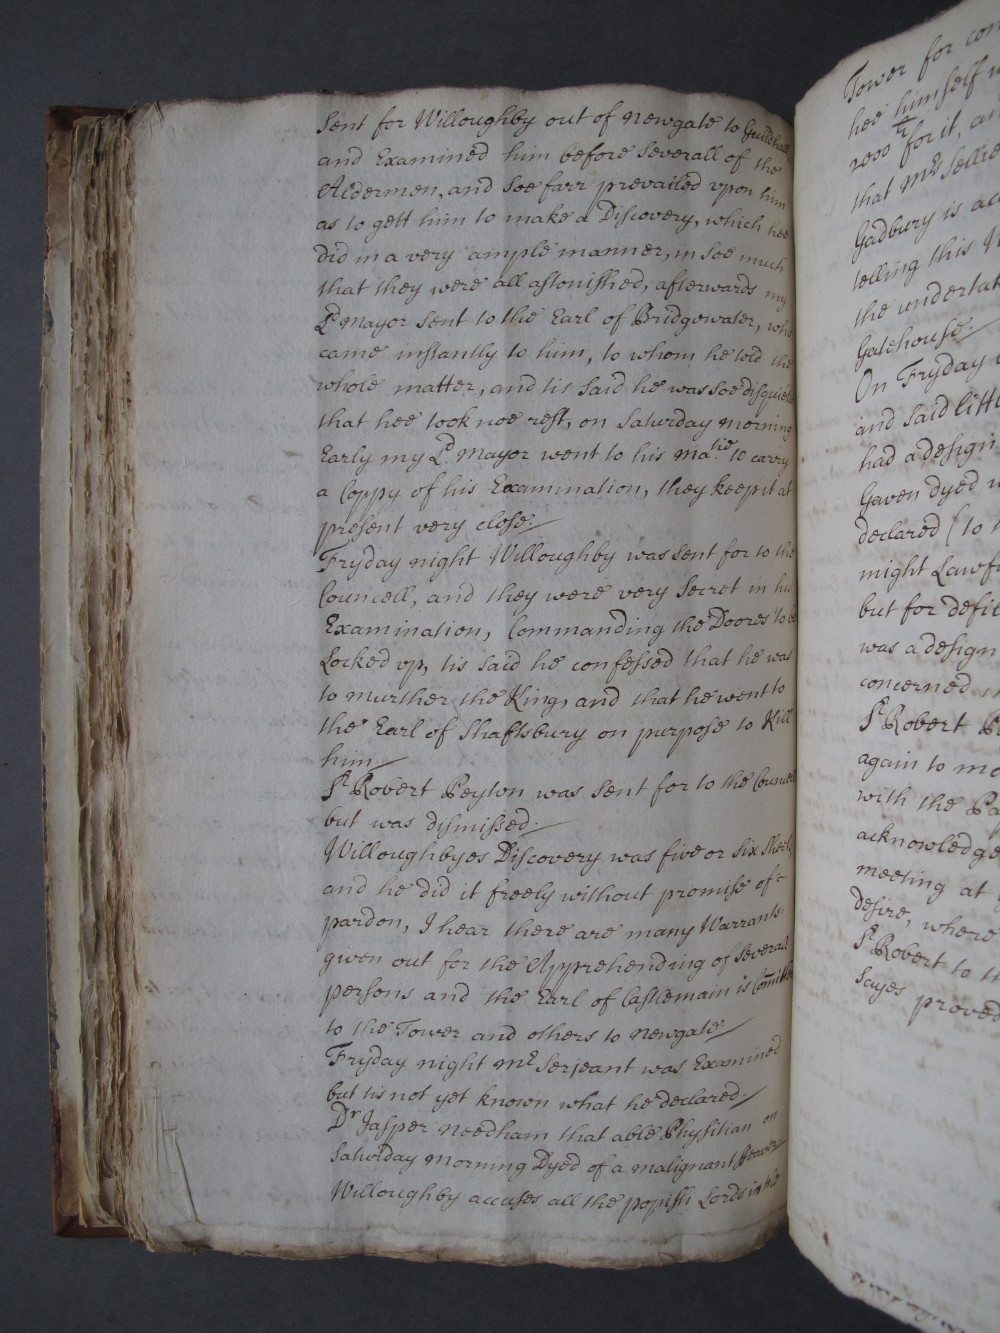 Sent for Willoughby out of Newgate to Guildhall,
and Examined him before Severall of the
Aldermen, and Soe farr prevailed vpon him
as to gett him to make a Discovery, which hee
did in a very ample manner, in Soe much
that they were all astonished, afterwards my
Ld Mayor Sent to the Earl of Bridgewater, who
came instantly to him, to whom he told the
whole matter, and tis Said he was Soe disquieted
that hee took noe rest, on Saturday morning
Early my Ld Mayor went to his Matie to carry
a Coppy of his Examination, they keep it at
present very close.
Fryday night Willoughby was sent for to the
Councell, and they were very Secret in his
Examination, Commanding the Doores to be
Locked vp, tis said he confessed that he was
to murther the King, and that he went to
the Earl of Shaftsbury on purpose to Kill
him.
Sr Robert Peyton was Sent for to the Councell
but was dismissed.
Willoughbyes Discovery was five or Six Sheets,
and he did it freely without promise of
pardon, I hear there are many Warrants
given out for the Apprehending of Severall
persons and the Earl of Castlemain is Comitted
to the Tower and others to Newgate.
Fryday night mr Serjeant was Examined
but tis not yet known what he declared.
Dr Jasper Needham that able Physitian on
Saturday morning Dyed of a malignant feaver
Willoughby accuses all the popish Lords in the
Tower for
hee himself
2000 li for it, an
that Mrs Sellie
Gadbury is
telling this
the
Gatehouse.
On Fryday
and said
had a design
Gaven dyed
declared (to
might
but for
was a design
concerned
Sr Robert
again to
with the
acknowledge
meeting at
desire, where
Sr Robert to
sayes proved